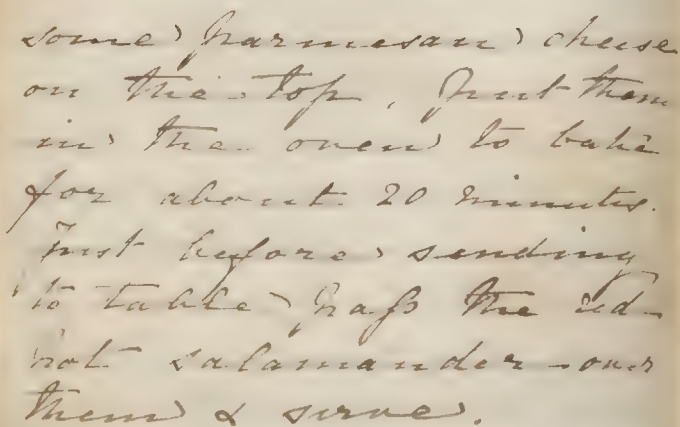 some parmesan cheese
on the top, Put them
in the oven to bake
for about 20 minutes.
Just before sending
to table pass the red
hot salamander over
them & serve.